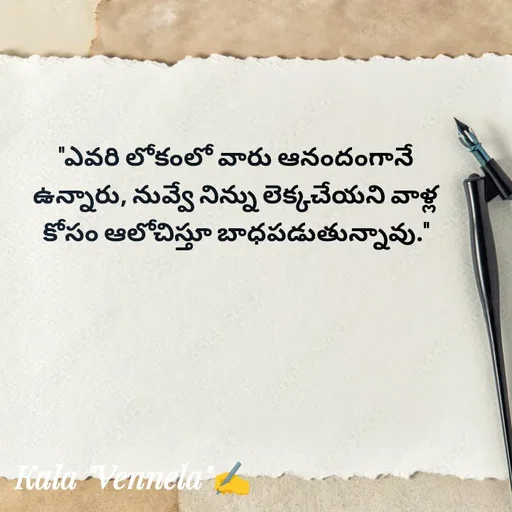 "ఎవరి లోకంలో వారు ఆనందంగానే
ఉన్నారు, నువ్వే నిన్ను లెక్కచేయని వాళ్ల
కోసం ఆలోచిస్తూ బాధపడుతున్నావు."
Kala "Vennela"✍️